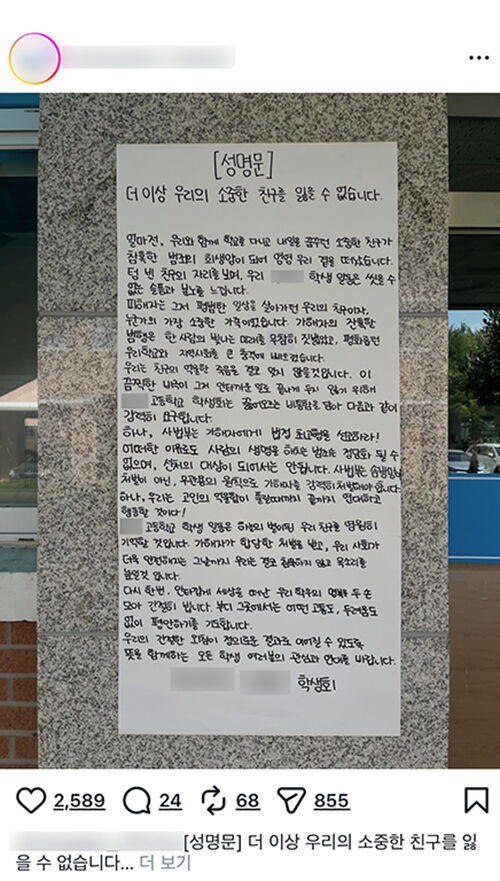 [성명문]
더 이상 우리의 소중한 친구를 잃을 수 없습니다.
얼마전, 우리와 함께 학교를 다니고 내일을 꿈꾸던 소중한 친구가
참혹한 범죄의 희생양이 되어 영영 우리 곁을 떠났습니다.
텅 빈 친구의 자리를 보며, 우리 학생 일동은 씻을 수
없는 슬픔과 분노를 느낍니다.
피해자는 그저 평범한 일상을 살아가던 우리의 친구이자,
누군가의 가장 소중한 가족이었습니다. 가해자의 잔혹한
범행은 한 사람의 빛나는 미래를 무참히 짓밟았고, 평화롭던
우리학교와 지역사회를 큰 충격에 빠뜨렸습니다.
우리는 친구의 억울한 죽음을 결코 잊지 않을것입니다. 이
끔찍한 비극이 그저 안타까운 일로 끝나게 두지 않기 위해
고등학교 학생회는 끓어오르는 비통함을 담아 다음과 같이
강력히 요구합니다.
하나, 사법부는 가해자에게 법정 최고형을 선고하라!
어떠한 이유로도 사람의 생명을 해하는 범죄는 정당화 될 수
없으며, 선처의 대상이 되어서는 안됩니다. 사법부는
처벌이 아닌, 무관용의 원칙으로 가해자를 강력히 처벌해야 합니다.
하나, 우리는 고인의 억울함이 풀릴때까지 끝까지 연대하고
행동할 것이다!
고등학교 학생 일동은 하늘의 별이된 우리 친구를 영원히
기억할 것입니다. 가해자가 합당한 처벌을 받고, 우리 사회가
더욱 안전해지는 그날까지 우리는 결코 침묵하지 않고 목소리를
높일것 입니다.
다시 한번, 안타깝게 세상을 떠난 우리 학우의 명복을 두 손
모아 간절히 빕니다. 부디 그곳에서는 어떤 고통도, 두려움도
없이 평안하기를 기도합니다.
우리의 간절한 외침이 정의로운 결과로 이어질 수 있도록
뜻을 함께하는 모든 학생 여러분의 관심과 연대를 바랍니다.
학생회
2,589 24 68 855
[성명문] 더 이상 우리의 소중한 친구를 잃
을 수 없습니다... 더 보기